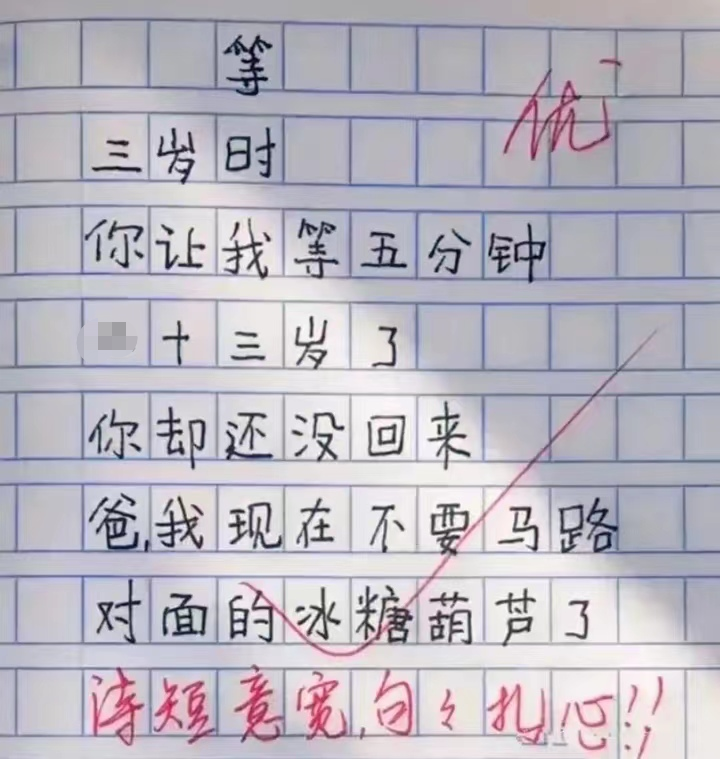 等
优
三岁时
你让我等五分钟
十三岁了
你却还没回来
爸,我现在不要马路
对面的冰糖葫芦了
诗短意宽,句々扎心!!